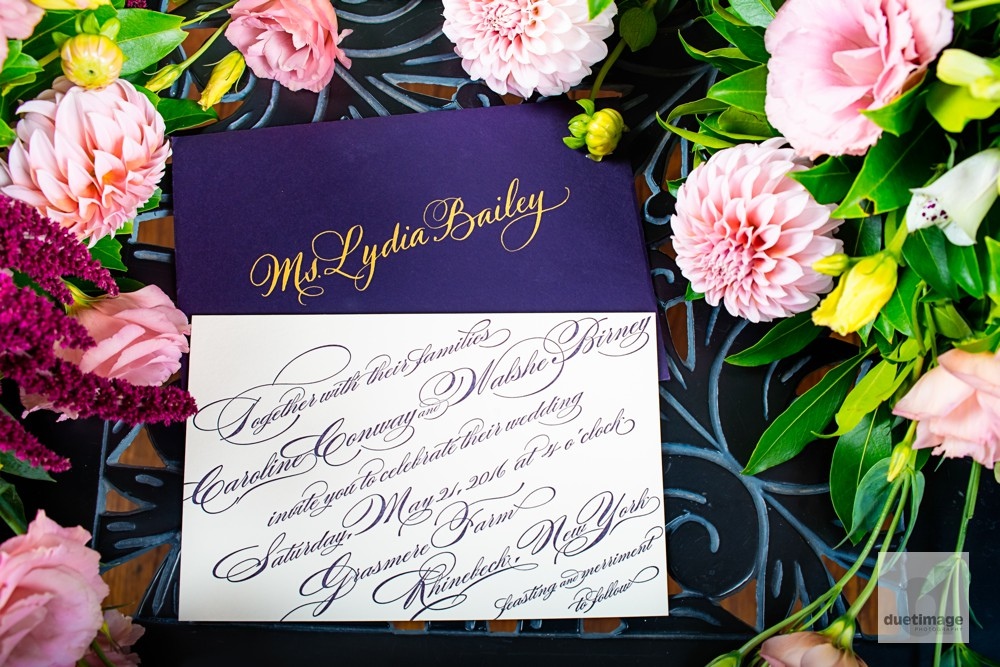 Ms. Lydia Bailey
Together with their families
Caroline Conway and Walshe Birney
invite you to celebrate their wedding
Saturday, May 21, 2016 at 4 o'clock
Grasmere Farm
Rhinebeck, New York
feasting and merriment
to follow
duetimage
PHOTOGRAPHY